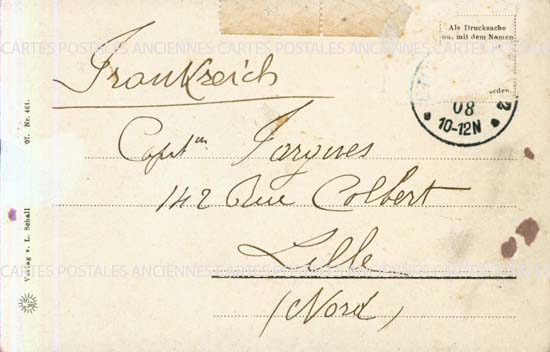 Als Drucksache
nu. mit dem Namen
orden.
08
10-12N
Frankreich
Captⁿ Jargues
142 Rue Colbert
Lille
(Nord)
Verlag v. L. Schall
07. Nr. 461.
CARTES POSTALES ANCIENNES CARTES POSTALES ANCIENNES CARTES POSTALES
CARTES POSTALES ANCIENNES CARTES POSTALES ANCIENNES CARTES POSTALES